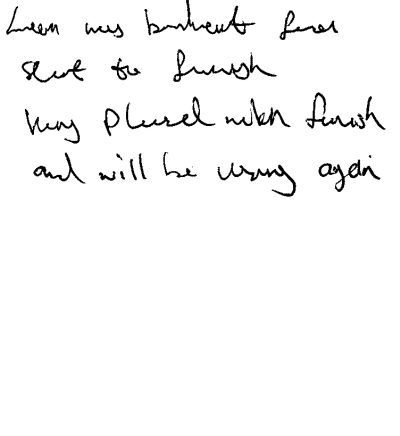 was brilliant from
start to finish
Very pleased with finish
and will be using again